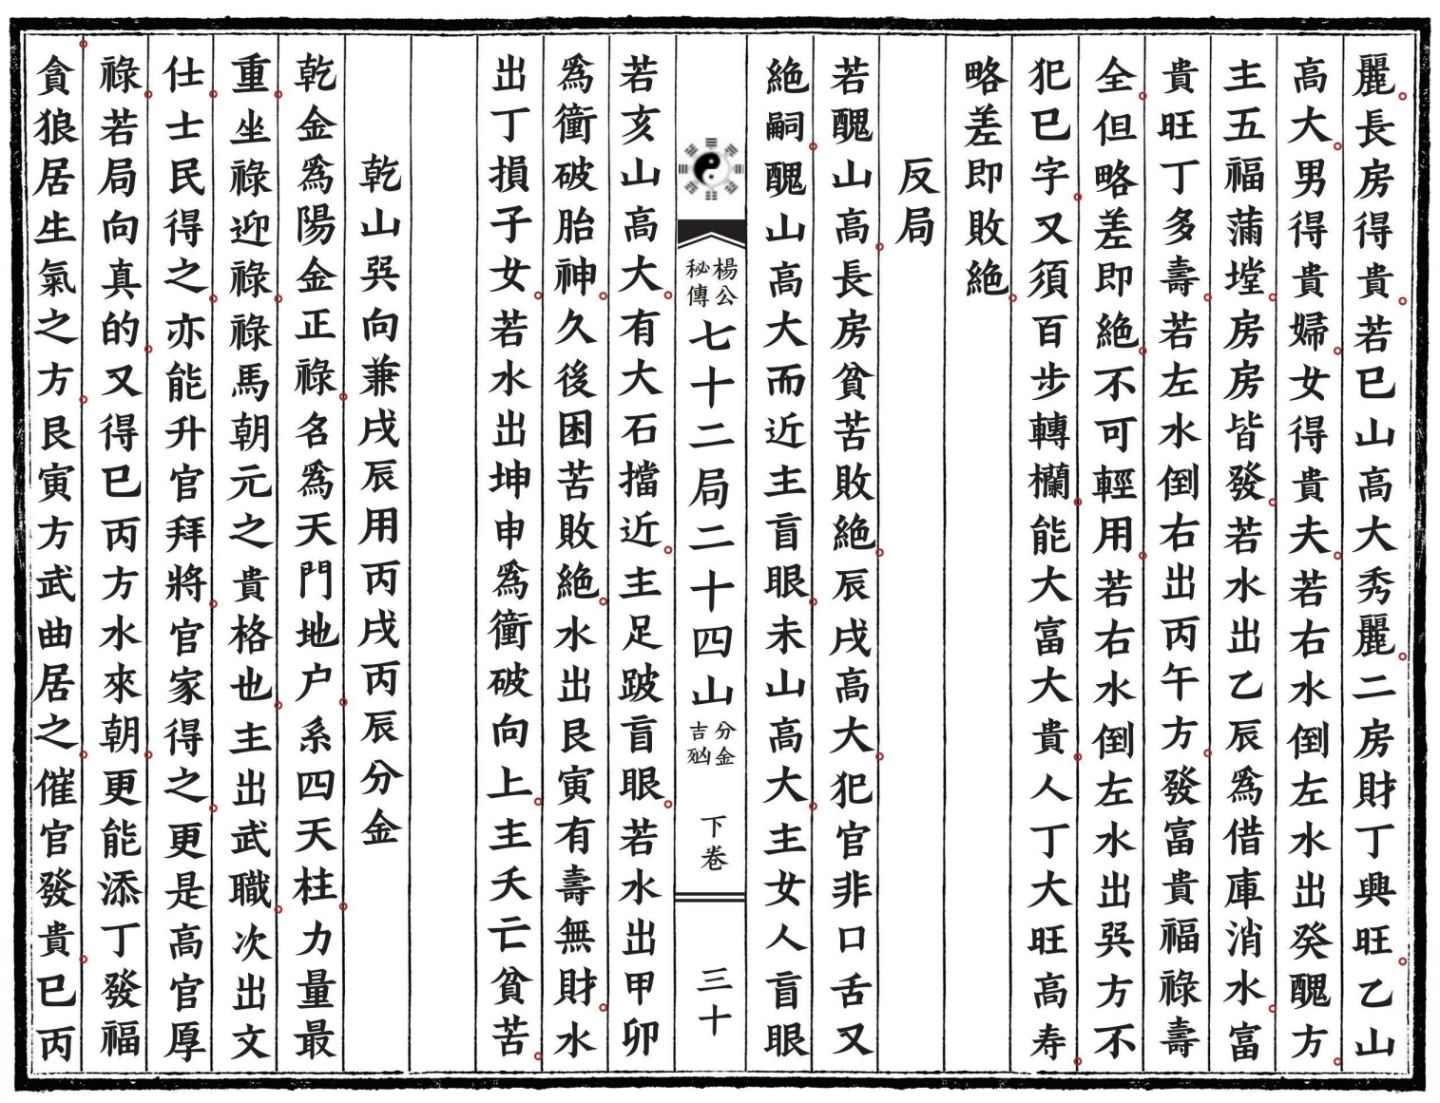 麗長房得貴若巳山高大秀麗二房財丁興旺乙山
高大男得貴婦女得貴夫若右水倒左水出癸醜方
主五福蒲堂房房皆發若水出乙辰爲借庫消水富
貴旺丁多壽若左水倒右出丙午方發富貴福祿壽
全但略差即絶不可輕用若右水倒左水出巽方不
犯巳字又須百步轉欄能大富大貴人丁大旺高寿
略差即敗絶
反局
若醜山高長房貧苦敗絶辰戌高大犯官非口舌又
絶嗣醜山高大而近主盲眼未山高大主女人盲眼
楊公秘傳七十二局二十四山分金吉凶 下卷 三十
若亥山高大有大石擋近主足跛盲眼若水出甲卯
爲衝破胎神久後困苦敗絶水出艮寅有壽無財水
出丁損子女若水出坤申爲衝破向上主夭亡貧苦
乾山巽向兼戌辰用丙戌丙辰分金
乾金爲陽金正祿名爲天門地户系四天柱力量最
重坐祿迎祿祿馬朝元之貴格也主出武職次出文
仕士民得之亦能升官拜將官家得之更是高官厚
祿若局向真的又得巳丙方水來朝更能添丁發福
貪狼居生氣之方艮寅方武曲居之催官發貴巳丙